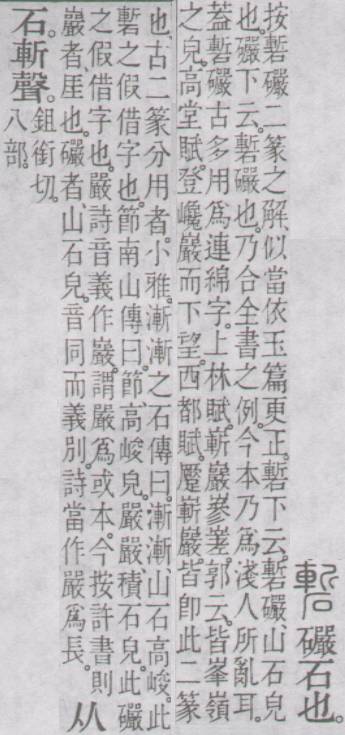 磛 礹石也。
按磛礹二篆之解、似當依玉篇更正。磛下云。磛礹、山石皃
也。礹下云。磛礹也。乃合全書之例。今本乃爲淺人所亂耳。
蓋磛礹古多用爲連綿字。上林賦。嶄巖參嵳。郭云。皆峯嶺
之皃。高堂賦。登巉巖而下望。西都賦。蹷嶄巖。皆卽此二篆
也。古二篆分用者。小雅。漸漸之石傳曰。漸漸、山石高峻。此
磛之假借字也。節南山傳曰。節、高峻皃。嚴嚴、積石皃。此礹
之假借字也。嚴詩音義作巖。謂嚴爲或本。今按許書則
巖者、厓也。礹者、山石皃。音同而義別。詩當作嚴爲長。
从
石斬聲。
鉏銜切。
八部。